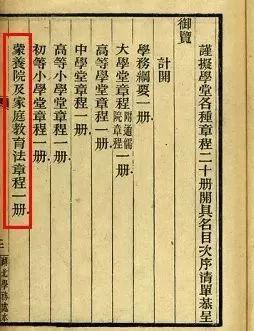 謹擬學堂各種章程二十冊開具名目次序清單恭呈
御覽
計開
學務綱要一冊
大學堂章程附通儒院章程一冊
高等學堂章程一冊
中學堂章程一冊
高等小學堂章程一冊
初等小學堂章程一冊
蒙養院及家庭教育法章程一冊